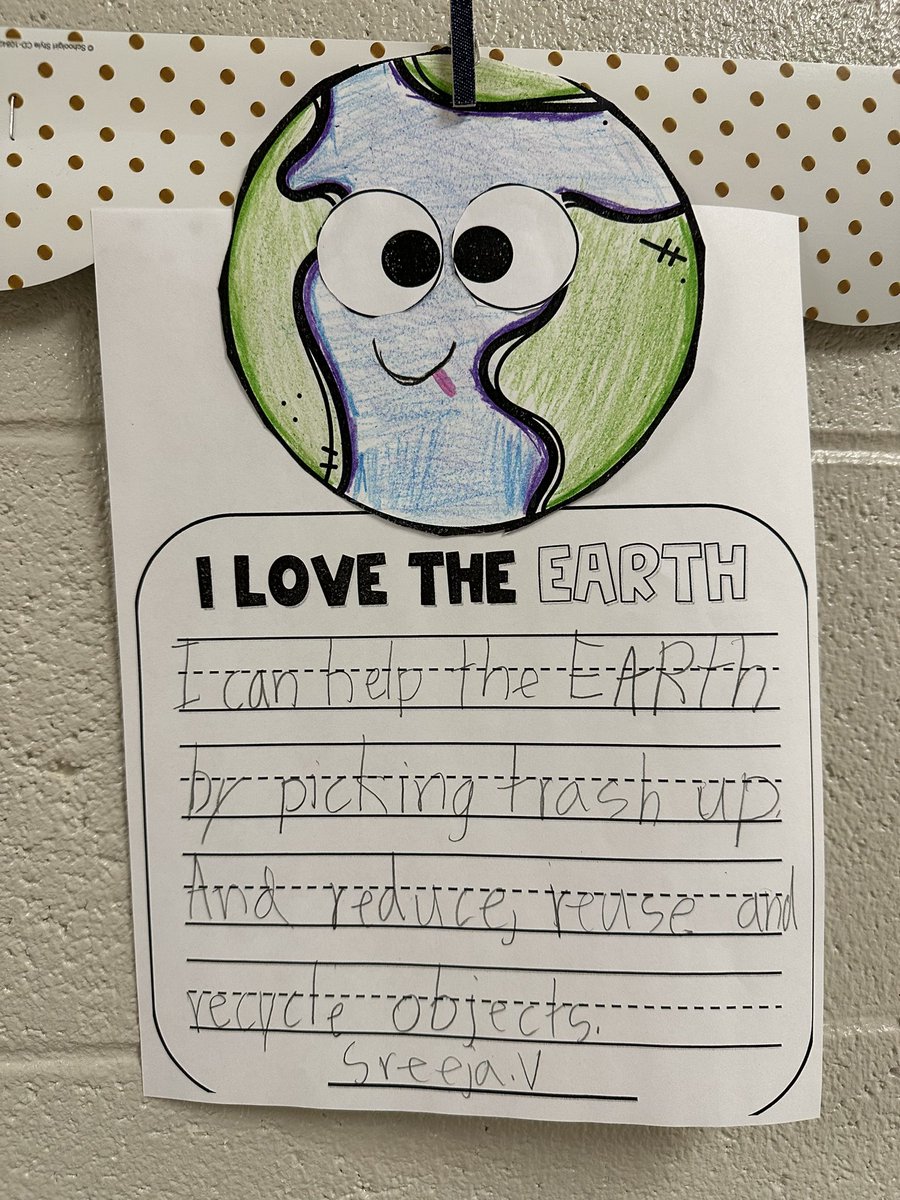 © Schoolgirl Style CD-1084
I LOVE THE EARTH
I can help the EARth
by picking trash up.
And reduce, reuse and
recycle objects.
Sreeja.V